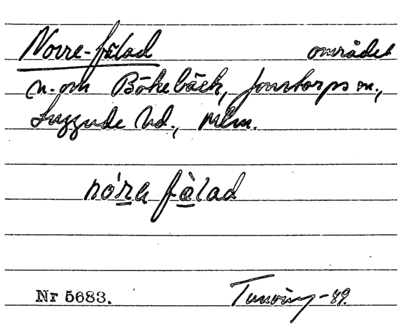 Norre-fälad området
n.om Bökebäck, Jonstorps sn.,
Luggude hd., Mlm.
nó́ra fàlad
Nr 5683. Tuneving -89.